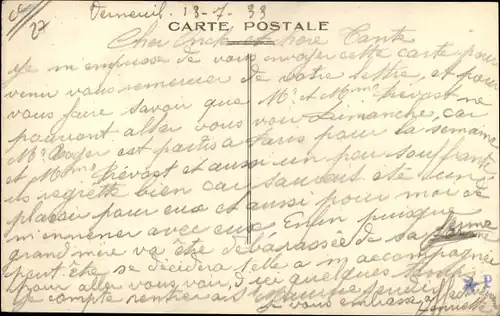 27
Verneuil, 13-7-33
CARTE POSTALE
Cher Oncle et chère Tante
Je m'empresse de vous envoyer cette carte pour
venir vous remercier de votre lettre, et pour
vous faire savoir que Mr et Mme Prévost ne
pourront aller vous voir Dimanche, car
Mr Roger est partis à Paris pour la semaine
et Mme Prévost et aussi un peu souffrante
ils regrette bien car saurait été un
plaisir pour eux et aussi pour moi de
m'emmener avec eux. Enfin puisque
grand'mère va être débarassée de sa ferme
peut être se décidera t'elle a m'accompagnée
pour aller vous voir, d'ici quelques temps
Je compte rentrer
Je vous embrasse affectueusement
Henriette
P